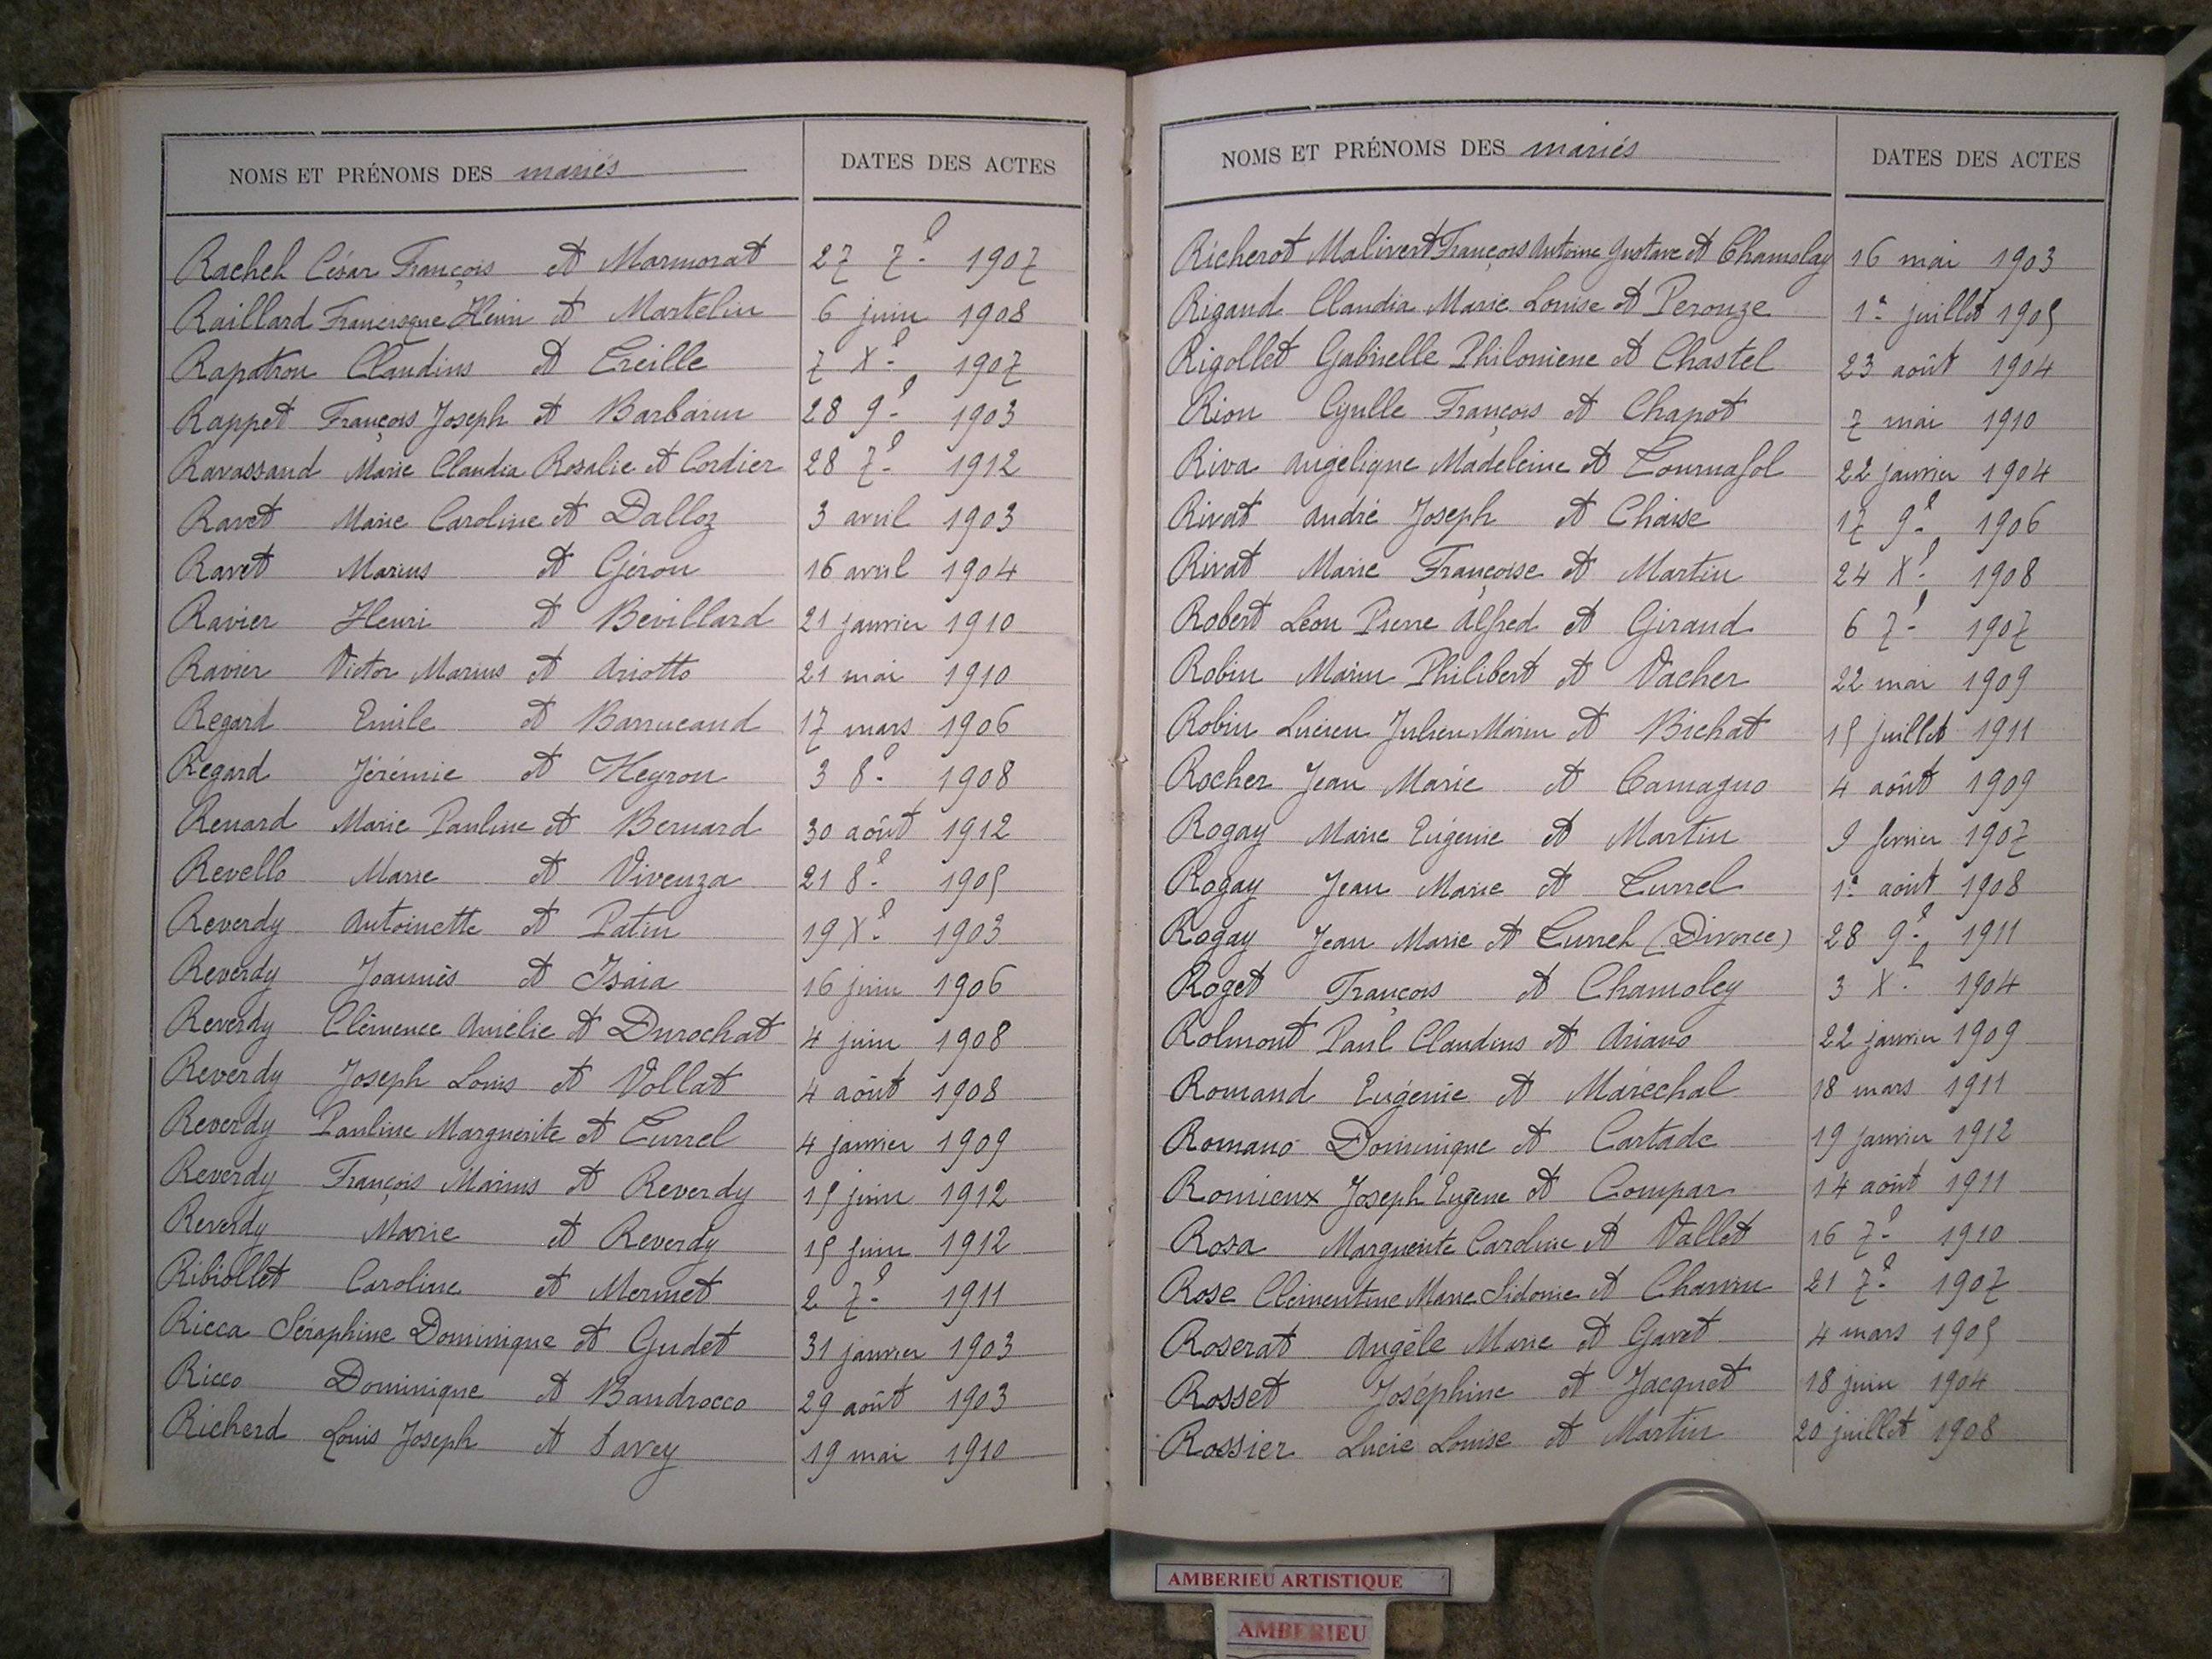 NOMS ET PRÉNOMS DES mariés DATES DES ACTES
Rachel César François et Marmorat 27 7e 1907
Raillard Francisque Henri et Martelin 6 juin 1908
Rapatron Claudius et Treille 7 Xe 1907
Rappet François Joseph et Barbarin 28 9e 1903
Ravassand Marie Claudia Rosalie et Cordier 28 7e 1912
Ravet Marie Caroline et Dalloz 3 avril 1903
Ravet Marius et Géron 16 avril 1904
Ravier Henri et Bévillard 21 janvier 1910
Ravier Victor Marius et Ariotto 21 mai 1910
Regard Emile et Barrucand 17 mars 1906
Regard Jérémie et Heyron 3 8e 1908
Renard Marie Pauline et Bernard 30 août 1912
Revello Marie et Vivenza 21 8e 1905
Reverdy Antoinette et Patin 19 Xe 1903
Reverdy Joannès et Isaia 16 juin 1906
Reverdy Clémence Amélie et Durochat 4 juin 1908
Reverdy Joseph Louis et Vollat 4 août 1908
Reverdy Pauline Marguerite et Currel 4 janvier 1909
Reverdy François Marius et Reverdy 15 juin 1912
Reverdy Marie et Reverdy 15 juin 1912
Ribiollet Caroline et Mermet 2 7e 1911
Ricca Séraphine Dominique et Gudet 31 janvier 1903
Ricco Dominique et Bandrocco 29 août 1903
Richerd Louis Joseph et Savey 19 mai 1910
NOMS ET PRÉNOMS DES mariés DATES DES ACTES
Richerot Malivert François Antoine Gustave et Chamolay 16 mai 1903
Rigaud Claudia Marie Louise et Perouze 1er juillet 1905
Rigollet Gabrielle Philomène et Chastel 23 août 1904
Rion Cyulle François et Chapot 7 mai 1910
Riva Angélique Madeleine et Tournafol 22 janvier 1904
Rivat André Joseph et Chaise 17 9e 1906
Rivat Marie Françoise et Martin 24 Xe 1908
Robert Léon Pierre Alfred et Giraud 6 7e 1907
Robin Marin Philibert et Vacher 22 mai 1909
Robin Lucien Julien Marin et Bichat 15 juillet 1911
Rocher Jean Marie et Camagno 4 août 1909
Rogay Marie Eugénie et Martin 9 février 1907
Rogay Jean Marie et Currel 1er août 1908
Rogay Jean Marie et Currel (Divorce) 28 9e 1911
Roget François et Chamoley 3 Xe 1904
Rolmont Paul Claudius et Ariano 22 janvier 1909
Romand Eugénie et Maréchal 18 mars 1911
Romano Dominique et Cartade 19 janvier 1912
Romieux Joseph Eugène et Compar 14 août 1911
Rosa Marguerite Caroline et Vallet 16 7e 1910
Rose Clémentine Marie Sidonie et Charvin 21 7e 1907
Roserat Angèle Marie et Gavet 4 mars 1905
Rosset Joséphine et Jacquet 18 juin 1904
Rossier Lucie Louise et Martin 20 juillet 1908
AMBERIEU ARTISTIQUE
AMBERIEU